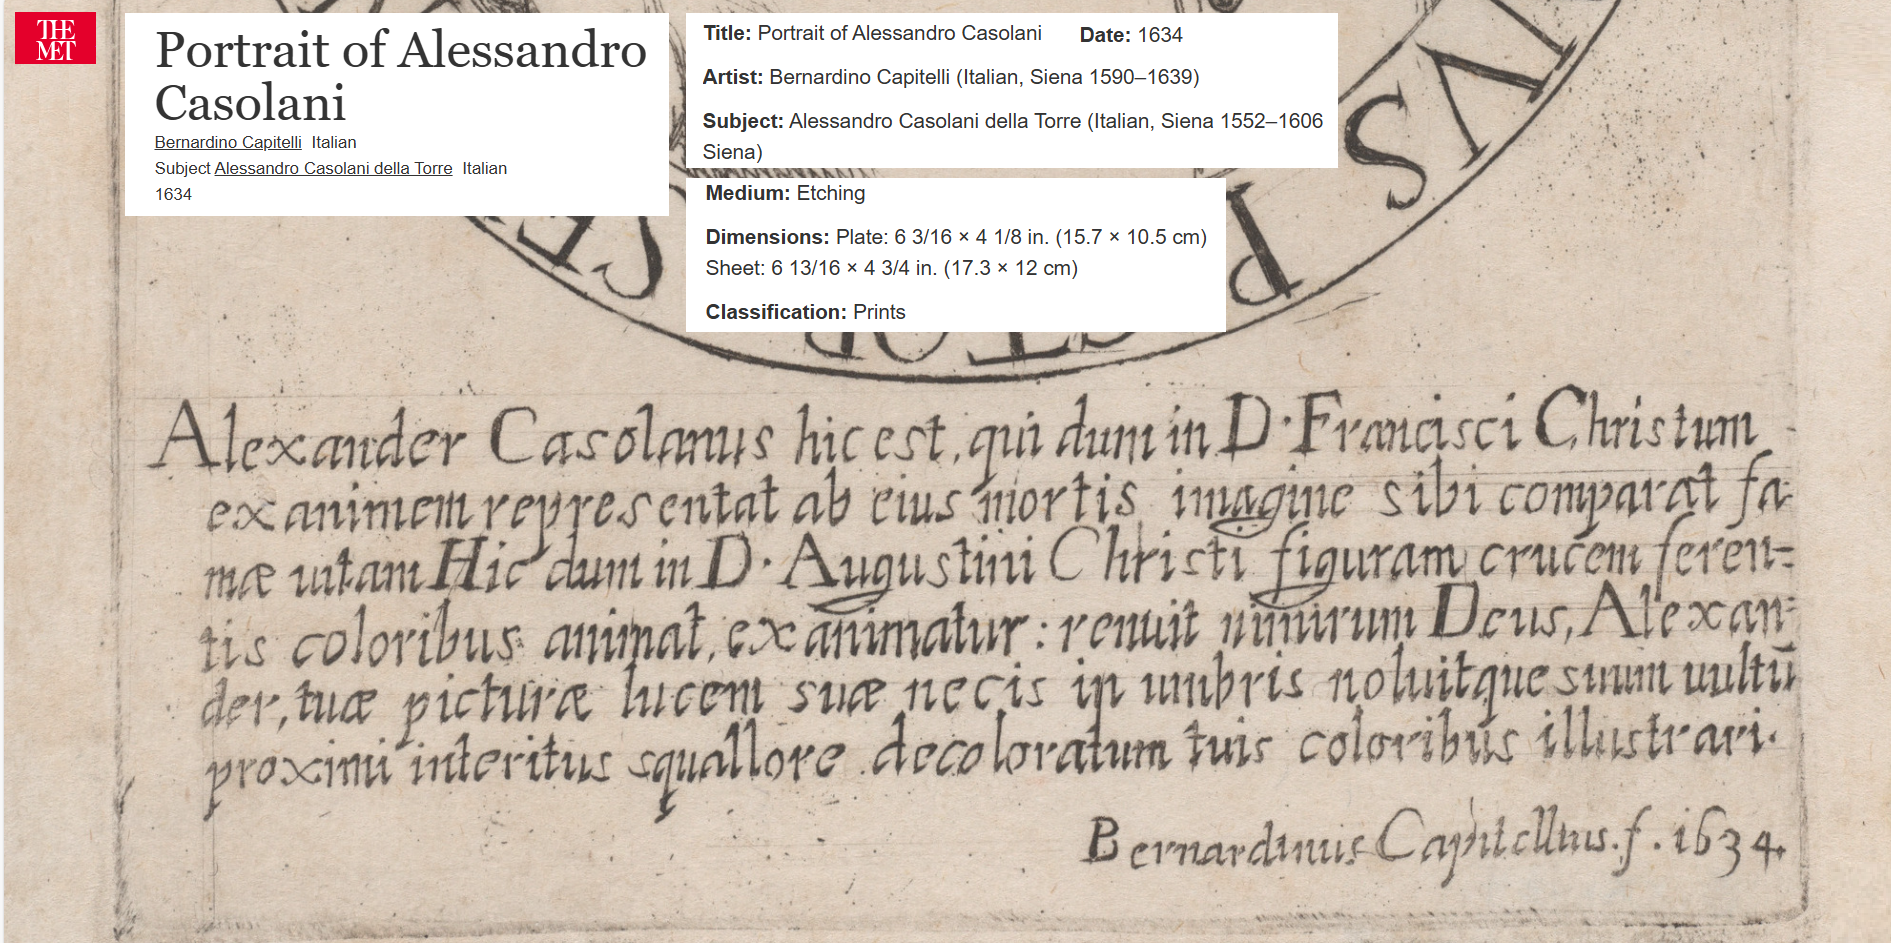 THE
MET
Portrait of Alessandro
Casolani
Bernardino Capitelli Italian
Subject Alessandro Casolani della Torre Italian
1634
Title: Portrait of Alessandro Casolani Date: 1634
Artist: Bernardino Capitelli (Italian, Siena 1590–1639)
Subject: Alessandro Casolani della Torre (Italian, Siena 1552–1606
Siena)
Medium: Etching
Dimensions: Plate: 6 3/16 × 4 1/8 in. (15.7 × 10.5 cm)
Sheet: 6 13/16 × 4 3/4 in. (17.3 × 12 cm)
Classification: Prints
Alexander Casolanus hic est, qui dum in D. Francisci Christum
exanimem representat ab eius mortis imagine sibi comparat fa-
mæ uitam Hic dum in D. Augustini Christi figuram crucem feren=
tis coloribus animat, exanimatur: renuit nimirum Deus, Alexan=
der, tuæ picturæ lucem suæ necis in umbris noluitque suum uultū
proximi interitus squallore decoloratum tuis coloribus illustrari.
Bernardinus Capitellius. f. 1634.